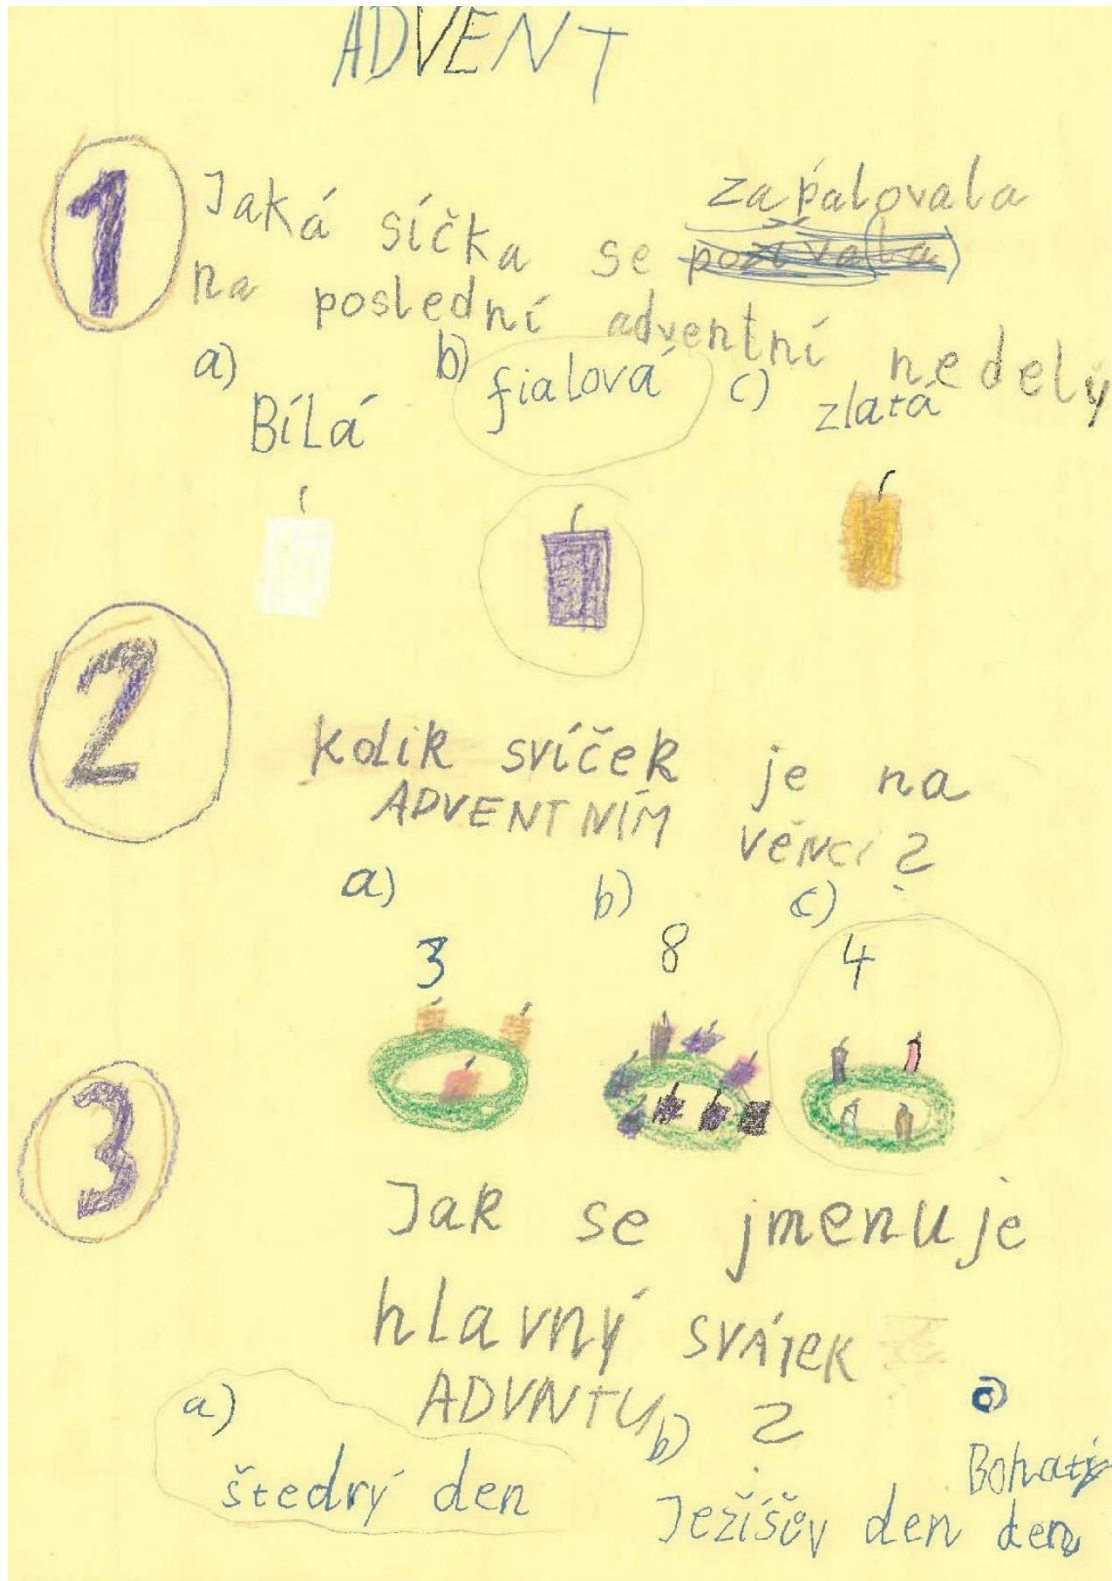 ADVENT
1 Jaká síčka se zapalovala
na poslední adventní nedely
a) Bílá b) fialová c) zlatá
2 kolik svíček je na
ADVENTNÍM věnci?
a) b) c)
3 8 4
3 Jak se jmenuje
hlavný svátek
ADVNTU?
a) štedrý den b) Ježíšův den c) Bohatý den